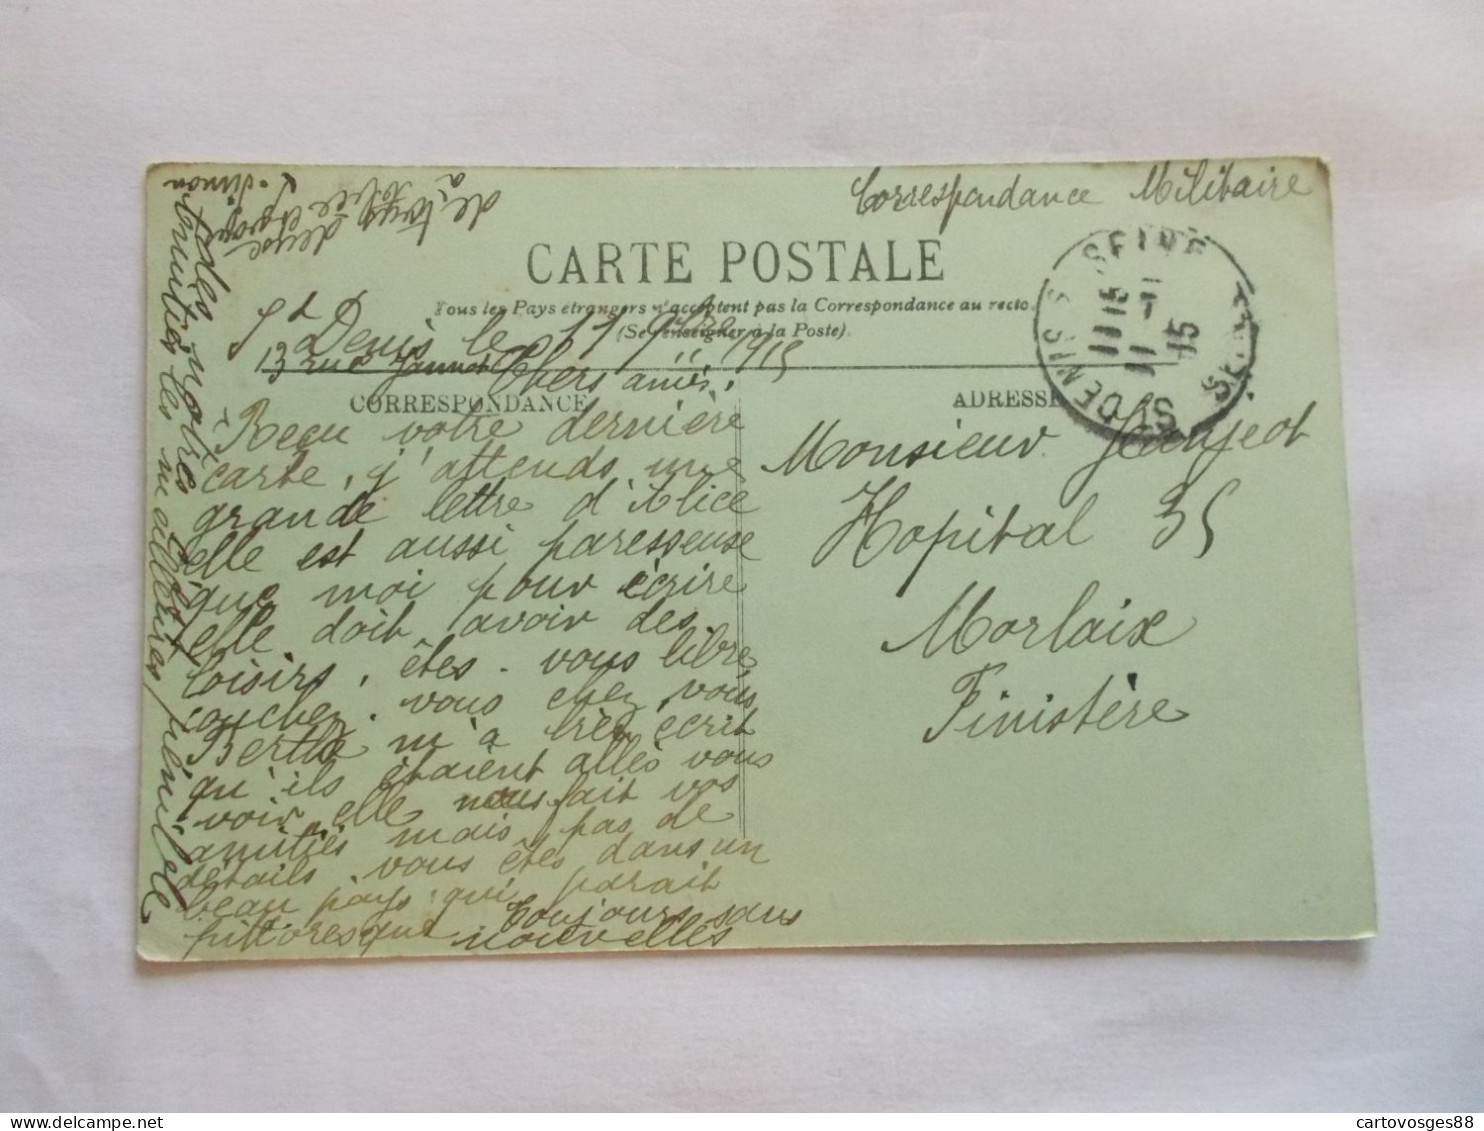 Correspondance Militaire
CARTE POSTALE
Tous les Pays étrangers n'acceptent pas la Correspondance au recto.
(Se renseigner à la Poste).
St Denis le 11 9bre 1915
13 rue Jannot
Chers amis.
CORRESPONDANCE
ADRESSE
Reçu votre dernière
carte, j'attends une
grande lettre d'Alice
elle est aussi paresseuse
que moi pour écrire
elle doit avoir des
loisirs, êtes-vous libre
couchez-vous chez vous
Berthe m'a écrit
qu'ils étaient allés vous
voir, elle nous fait vos
amitiés mais pas de
détails. vous êtes dans un
beau pays qui parait
pittoresque
toujours sans
nouvelles
de Loys
à vous nos
amitiés les meilleures
Simon
Monsieur Jeanjeot
Hopital 35
Morlaix
Finistère
ST DENIS S SEINE
11 15
11 - 15
SEINE
cartovosges88